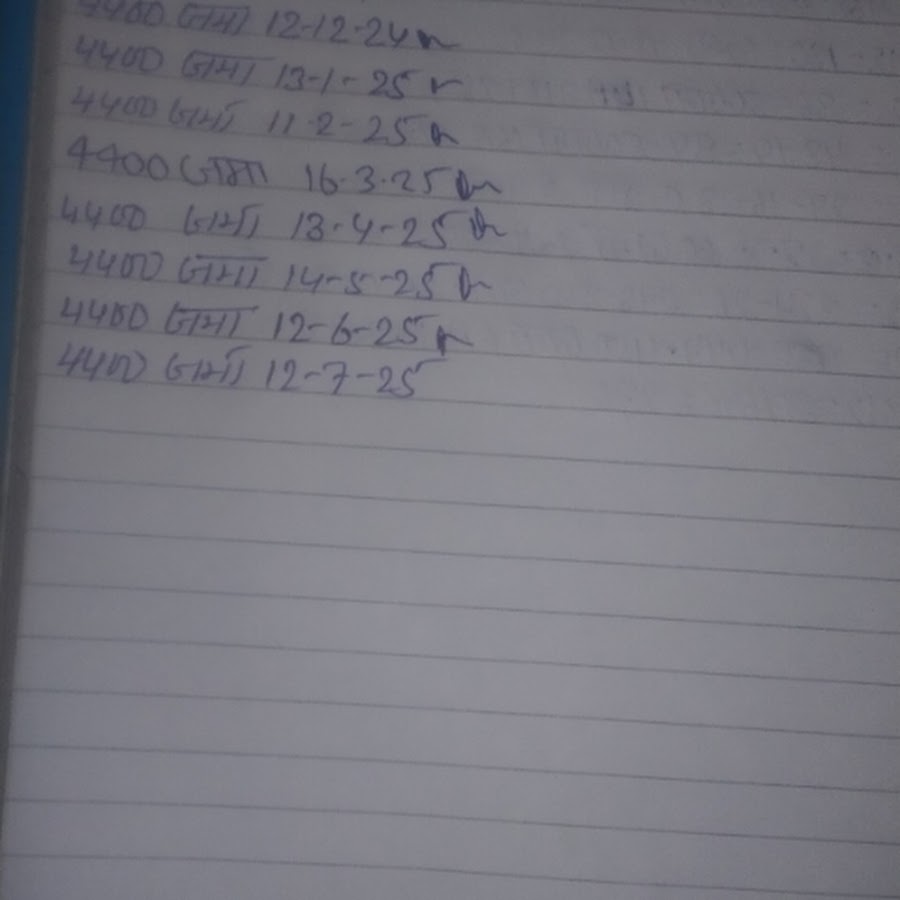 4400 जमा 12-12-24
4400 जमा 13-1-25
4400 जमा 11-2-25
4400 जमा 16.3.25
4400 जमा 13-4-25
4400 जमा 14-5-25
4400 जमा 12-6-25
4400 जमा 12-7-25